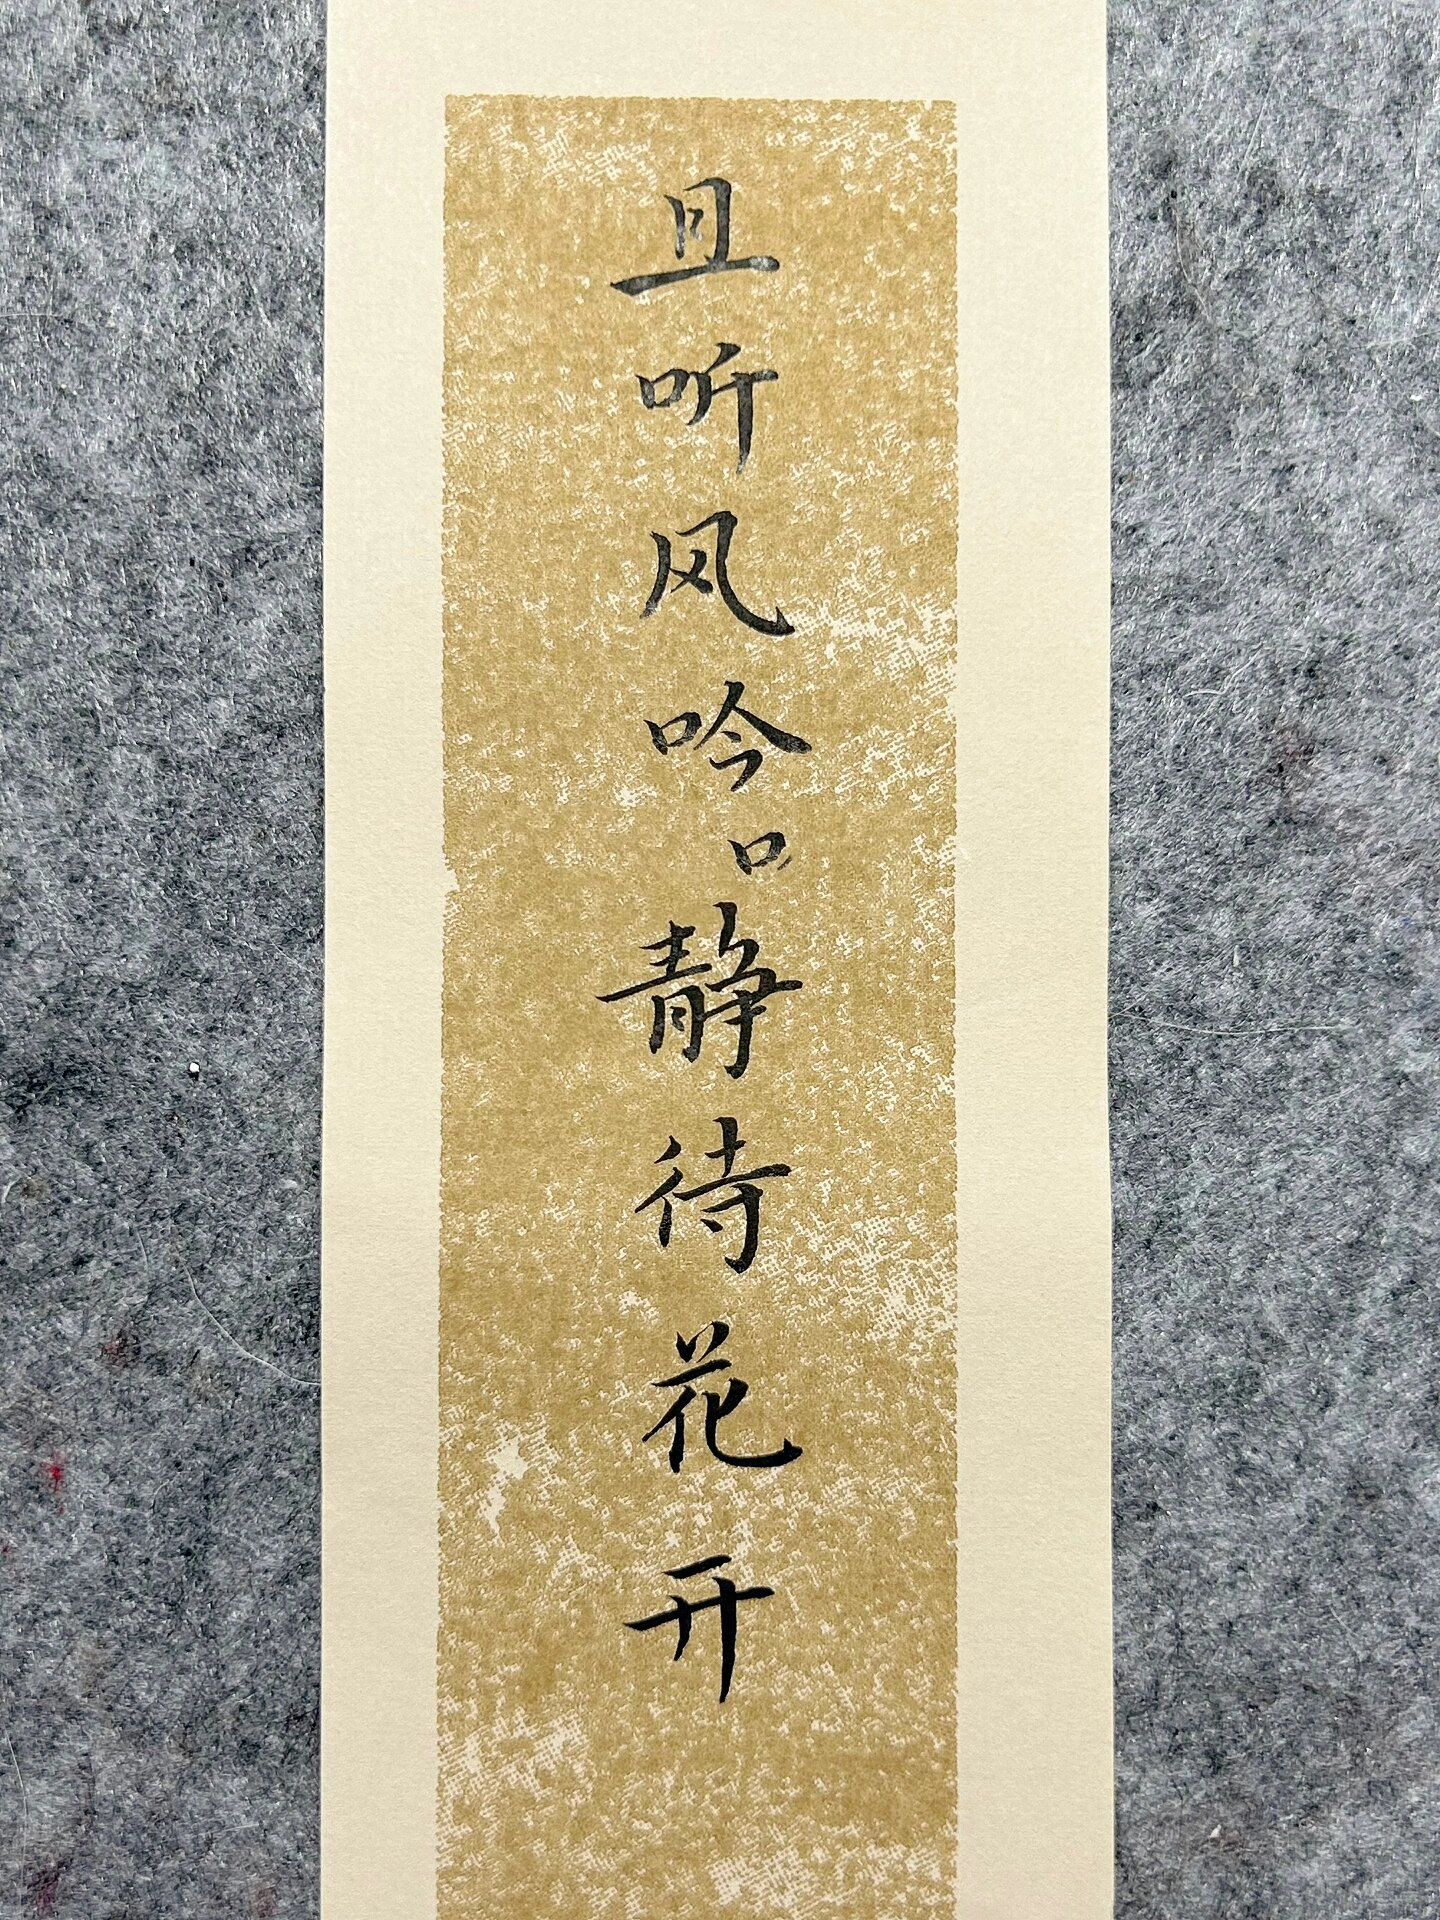 且听风吟口静待花开